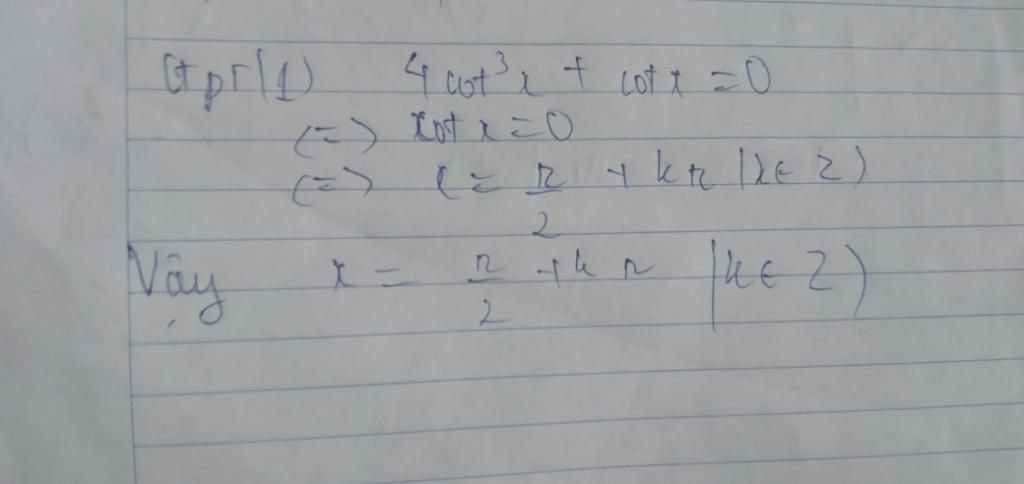 Gpt(1) 4cot³x + cotx = 0
<=> cot x = 0
<=> x = π/2 + kπ (k∈Z)
Vậy x = π/2 + kπ (k∈Z)